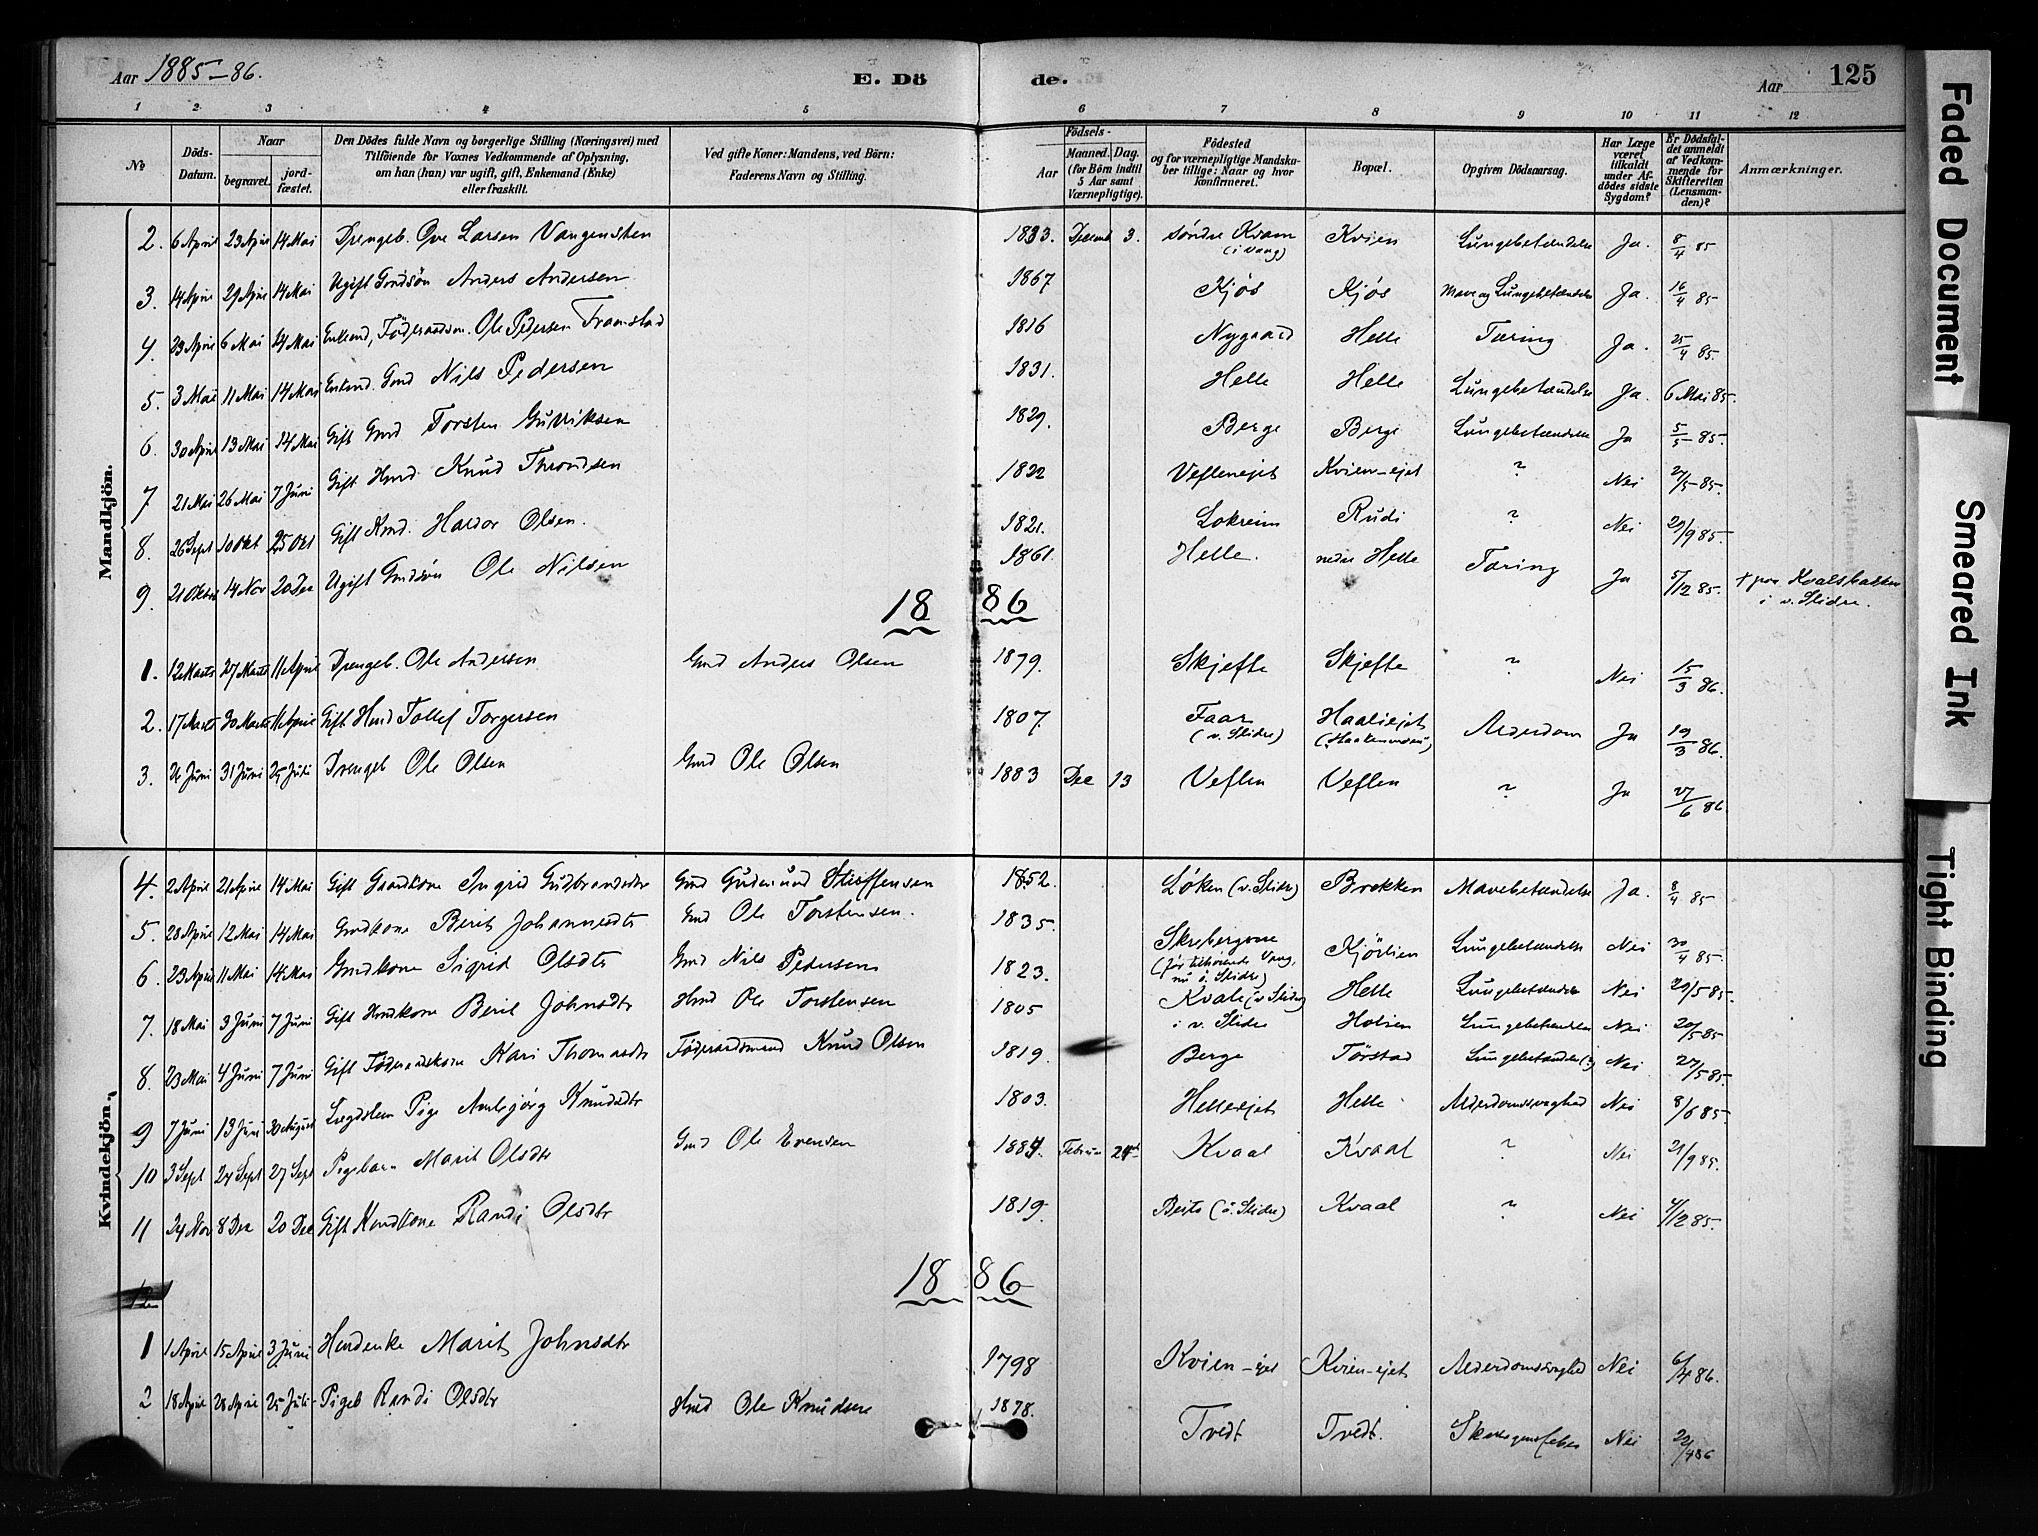 Aar 1885-86. E. Dö de. Aar 125
1 2 3 4 5 6 7 8 9 10 11 12
№ Döds-Datum. Naar begravet. jord-fæstet. Den Dödes fulde Navn og borgerlige Stilling (Næringsvei) med Tilföiende for Voxnes Vedkommende af Oplysning, om han (hun) var ugift, gift, Enkemand (Enke) eller fraskilt. Ved gifte Koner: Mandens, ved Börn: Faderens Navn og Stilling. Födsels- Aar Maaned. Dag. (for Börn indtil 5 Aar samt Værnepligtige). Födested og for værnepligtige Mandskaber tillige: Naar og hvor konfirmeret. Bopæl. Opgiven Dödsaarsag. Har Læge været tilkaldt under Afdödes sidste Sygdom? Er Dödsfaldet anmeldt af Vedkommende for Skifteretten (Lensmanden)? Anmærkninger.
Mandkjön.
2. 6 April 23 April 14 Mai Drengeb. Ove Larsen Vangensten 1883. Decemb 3. søndre Kvam (i Vang) Kvien Lungebetændelse Ja. 8/4 85
3. 14 April 29 April 14 Mai Ugift Gmdsøn Anders Andersen 1867 Kjøs Kjøs Mave og Lungebetændelse Ja. 16/4 85
4. 23 April 6 Mai 14 Mai Enkemd, Föderaadsm. Ole Pedersen Framstad 1816 Nygaard Helle Tæring Ja. 25/4 85.
5. 3 Mai 11 Mai 14 Mai Enkemd. Gmd Nils Pedersen 1831. Helle Helle Lungebetændelse Ja. 6 Mai 85.
6. 30 April 13 Mai 14 Mai Gift Gmd Torsten Gulliksen 1829. Berge Berge Lungebetændelse Ja 5/5 85.
7 21 Mai 26 Mai 7 Juni Gift Hmd Knud Throndsen 1822 Veflenejet Kvien-ejet ? Nei 27/5 85.
8. 26 Sept 10 Okt 25 Okt Gift Kmd. Haldor Olsen. 1821. Lokreim Rudi ? Nei 29/9 85.
9. 21 Oktbr 14 Nov 20 Dec Ugift Gmdsøn Ole Nilsen 1861. Helle. nedre Helle Tæring Ja 5/12 85. + paa Kvalsbakken
i v. Slidre.
18 86
1. 12 Marts 27 Marts 11 April Drengeb. Ole Andersen Gmd Anders Olsen 1879. Skjefte Skjefte ? Nei 15/3 86.
2. 17 Marts 30 Marts 11 April Gift Hmd Tollef Torgersen 1807. Faar (v. Slidre) Haaliejet Alderdom Ja 19/3 86.
3. 26 Juni 31 Juni 25 Juli Drengeb Ole Olsen Gmd Ole Olsen 1883 Dec 13 Veflen Veflen ? Ja 27/6 86
Kvindekjön.
4. 2 April 21 April 14 Mai Gift Gaardkone Ingrid Gudbrandsdtr Gmd Gudmund Steffensen 1852. Løken (v. Slidre) Brekken Mavebetændelse Ja. 8/4 85
5. 28 April 12 Mai 14 Mai Gmdkone Berit Johannesdtr Gmd Ole Torstensen. 1835. Skrebergene
(før tilhörende Vang, nu ö. Slidre) Kjørlien Lungebetændelse Nei 30/4 85.
6. 23 April 11 Mai 14 Mai Gmdkone Sigrid Olsdtr Gmd Nils Pedersen 1823. Kvale (v Slidre) Helle Lungebetændelse Nei 20/5 85.
7. 18 Mai 3 Juni 7 Juni Gift Hmdkone Berit Johnsdtr Hmd Ole Torstensen 1805 i v. Slidre Holien Lungebetændelse Nei 20/5 85
8. 23 Mai 4 Juni 7 Juni Gift Föderaadskone Kari Thomasdtr Föderaadsmand Knud Olsen 1819. Berge Tørstad Lungebetændelse (?) Nei 27/5 85.
9 7 Juni 13 Juni 30 August Lægdslem Pige Ambjørg Knudsdtr 1803. Helleejet Helle Alderdomssvaghed Nei 8/6 85.
10 3 Sept 24 Sept 27 Sept Pigebarn Marit Olsdtr Gmd Ole Evensen 1884. Februar 24 Kvaal Kvaal ? Nei 21/9 85.
11 24 Nov 8 Dec 20 Dec Gift Kmdkone Randi Olsdtr 1819. Beito (ö. Slidre) Kvaal ? Nei 4/12 85.
18 86
12
1 1 April 15 April 3 Juni Hmdenke Marit Johnsdtr 1798 Kvien-ejet Kvien-ejet Alderdomssvaghed Nei 6/4 86.
2 18 April 28 April 25 Juli Pigeb Randi Olsdtr Hmd Ole Knudsen 1878. Tvedt Tvedt. Skarlagensfeber Nei 22/4 86
Faded Document
Smeared Ink
Tight Binding